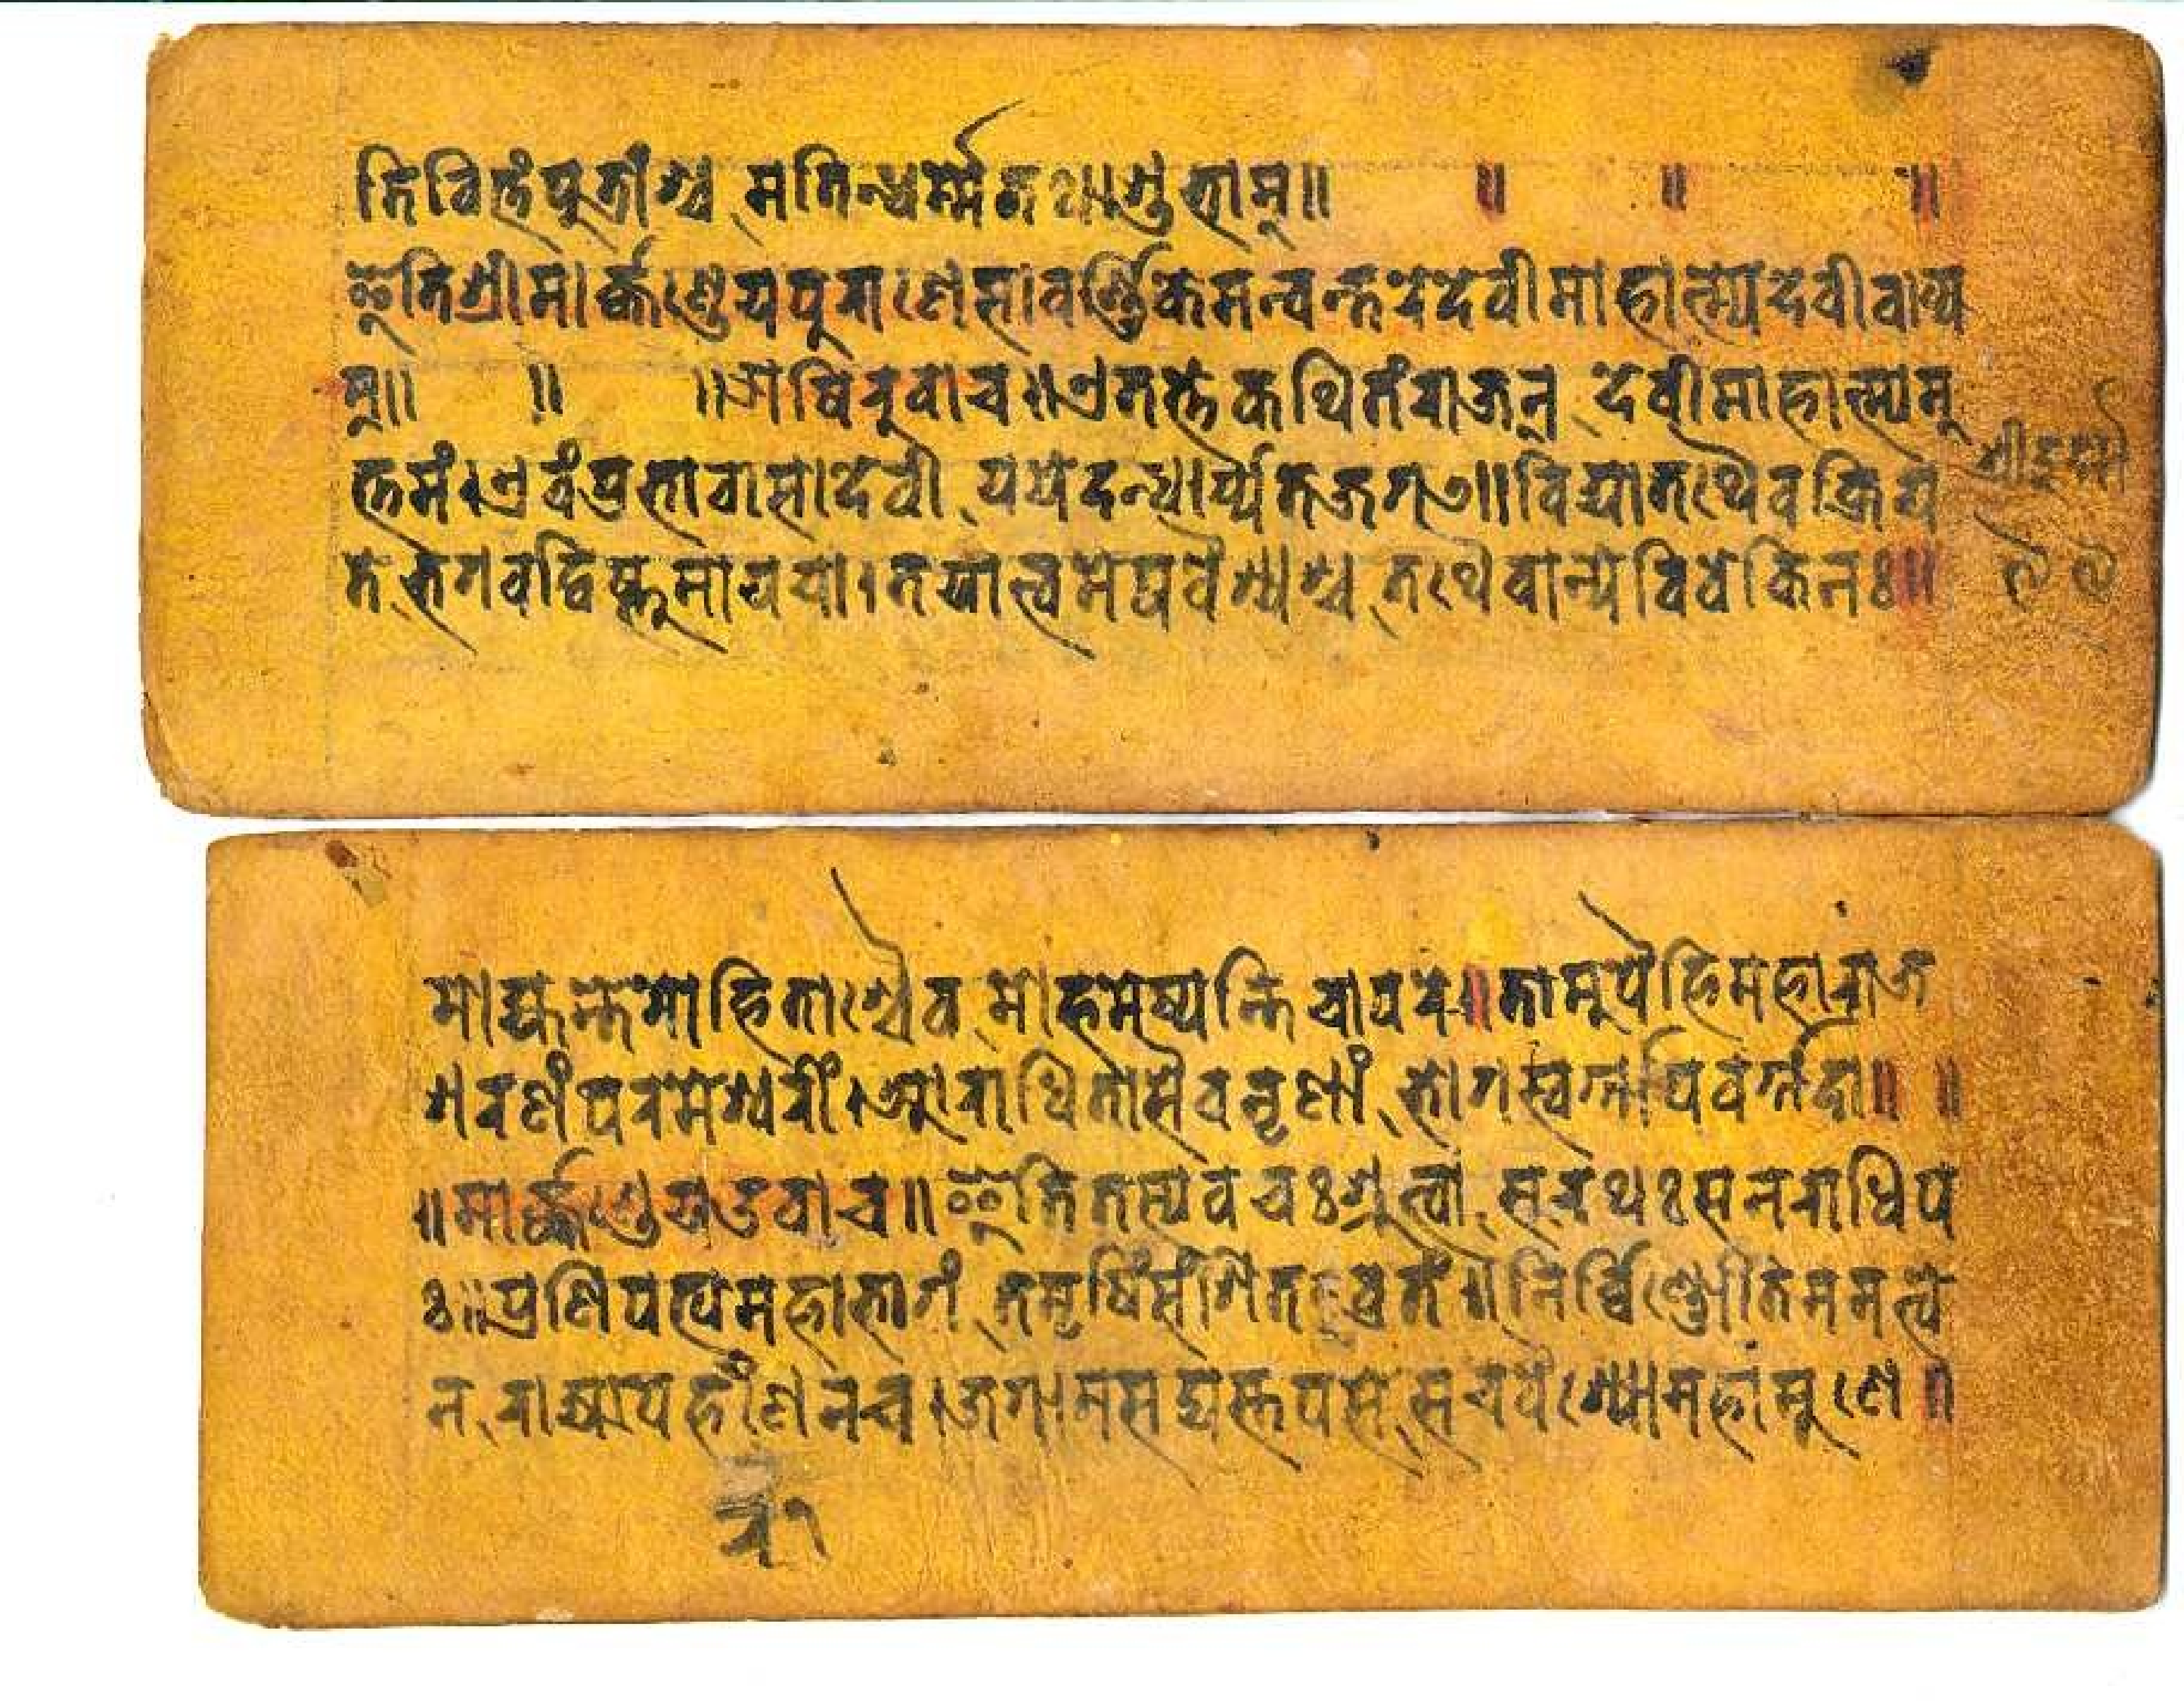 ति वित्तं पुत्रांश्च मतिन्धर्म्मे तथा शुभाम्॥ ॥ ॥ ॥
इति श्रीमार्क्कण्डेयपुराणे सावर्ण्णिकमन्वन्तरे देवीमाहात्म्ये देवीवाक्य
म्॥ ॥ ॥ऋषिरुवाच॥एतत्ते कथितं राजन् देवीमाहात्म्यमु
त्तमं।एवंप्रभावा सा देवी ययेदन्धार्य्यते जगत्॥विद्या तथैव क्रिय
ते भगवद्विष्णुमायया।तया त्वमेष वैश्यश्च तथैवान्ये विवेकिनः॥
मोह्यन्ते मोहिताश्चैव मोहमेष्यन्ति चापरे॥तामुपैहि महाराज
शरणं परमेश्वरीं।आराधिता सैव नृणां भोगस्वर्गापवर्गदा॥ ॥
॥मार्क्कण्डेय उवाच॥इति तस्य वचः श्रुत्वा सुरथः स नराधिप
ः॥प्रणिपत्य महाभागं तमृषिं संशितव्रतं॥निर्व्विण्णोतिममत्वे
न राज्यापहरणेन च।जगाम सद्यस्तपसे स च वैश्यो महामुने॥